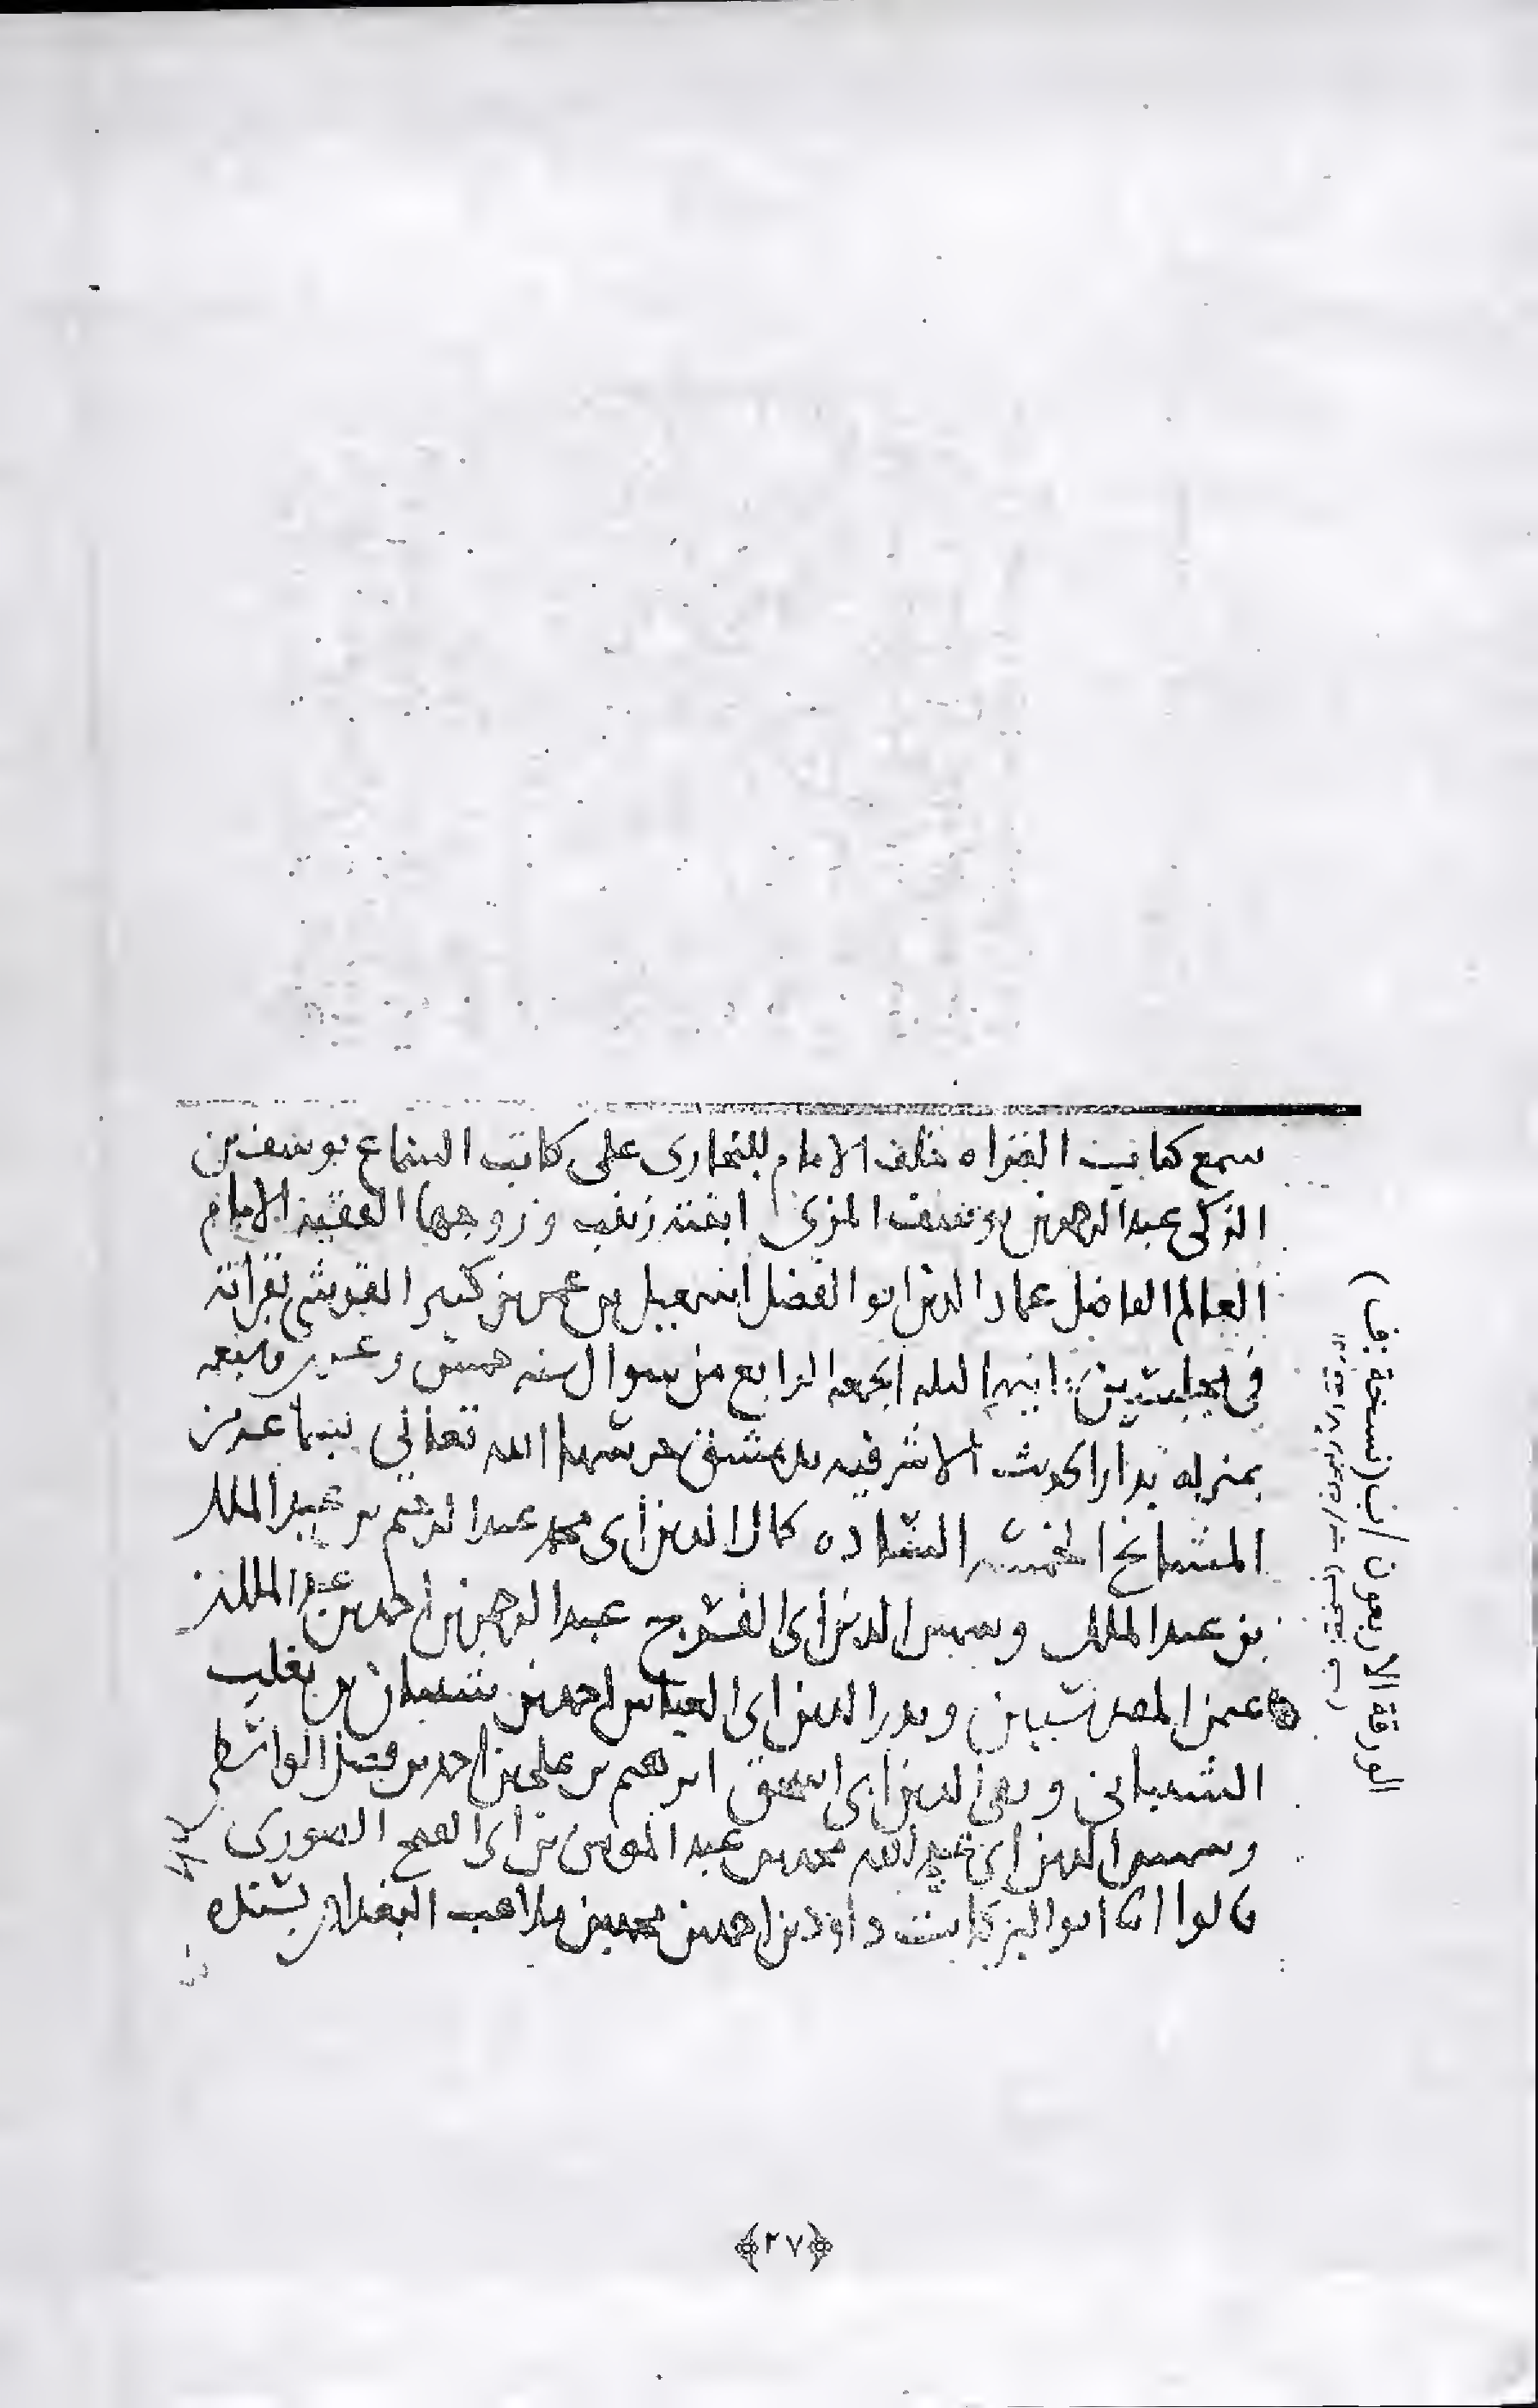 سمع كتاب القراة خلف الامام للبخارى على كاتب السماع يوسف بن
الزكى عبد الرحمن بن يوسف المزى ابنته زينب وزوجها الفقيه الامام
العالم الفاضل عماد الدين ابو الفضل اسمعيل بن عمر بن كثير القرشى بقراته
فى مجلسين الجمعه الرابع من شوال سنه خمس وعشرين وسبعمه
بمنزله بدار الحديث الاشرفيه بدمشق حرسها الله تعالى بسماعه من
المشايخ الخمسه الساده كمال الدين ابى محمد عبد الرحيم بن عبد الملك
بن عبد الملك وشمس الدين ابى الفرج عبد الرحمن بن احمد بن عبد الملك بن
عثمن المقدسيين وبدر الدين ابى العباس احمد بن شيبان بن تغلب
الشيبانى وتقى الدين ابى اسحق ابرهيم بن على بن احمد بن فضل الواسطى
وشمس الدين ابى عبد الله محمد بن عبد المومن بن ابى الفتح الصورى
قالوا انا ابو البركات داود بن احمد بن محمد بن ملاعب البغدادى بسنده
الورقة الاربعون/ب (نسخة: ف)
﴿٢٧﴾